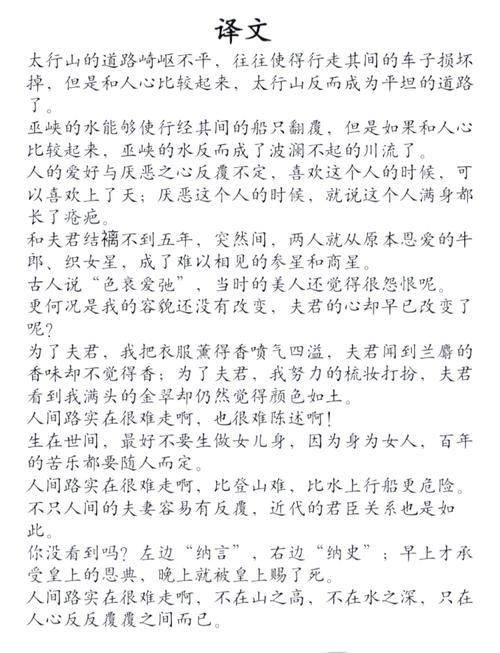 译文
太行山的道路崎岖不平，往往使得行走其间的车子损坏
掉，但是和人心比较起来，太行山反而成为平坦的道路
了。
巫峡的水能够使行经其间的船只翻覆，但是如果和人心
比较起来，巫峡的水反而成了波澜不起的川流了。
人的爱好与厌恶之心反覆不定，喜欢这个人的时候，可
以喜欢上了天；厌恶这个人的时候，就说这个人满身都
长了疮疤。
和夫君结褵不到五年，突然间，两人就从原本恩爱的牛
郎、织女星，成了难以相见的参星和商星。
古人说“色衰爱弛”，当时的美人还觉得很怨恨呢。
更何况是我的容貌还没有改变，夫君的心却早已改变了
呢？
为了夫君，我把衣服薰得香喷气四溢，夫君闻到兰麝的
香味却不觉得香；为了夫君，我努力的梳妆打扮，夫君
看到我满头的金翠却仍然觉得颜色如土。
人间路实在很难走啊，也很难陈述啊！
生在世间，最好不要生做女儿身，因为身为女人，百年
的苦乐都要随人而定。
人间路实在很难走啊，比登山难，比水上行船更危险。
不只人间的夫妻容易有反覆，近代的君臣关系也是如
此。
你没看到吗？左边“纳言”，右边“纳史”；早上才承
受皇上的恩典，晚上就被皇上赐了死。
人间路实在很难走啊，不在山之高，不在水之深，只在
人心反反覆覆之间而已。